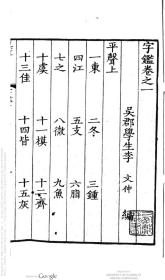 字鑑卷之一
吳郡學生李　文仲　編
平聲上
一東　二冬　三鍾
四江　五支　六脂
七之　八微　九魚
十虞　十一模　十二齊
十三佳　十四皆　十五灰
Google